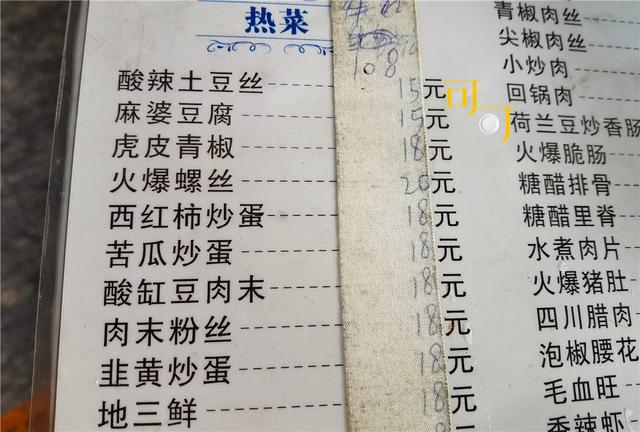 热菜
108
酸辣土豆丝 15元
麻婆豆腐 15元
虎皮青椒 18元
火爆螺丝 20元
西红柿炒蛋 18元
苦瓜炒蛋 18元
酸缸豆肉末 18元
肉末粉丝 18元
韭黄炒蛋 18元
地三鲜 18元
青椒肉丝
尖椒肉丝
小炒肉
回锅肉
荷兰豆炒香肠
火爆脆肠
糖醋排骨
糖醋里脊
水煮肉片
火爆猪肚
四川腊肉
泡椒腰花
毛血旺
香辣虾